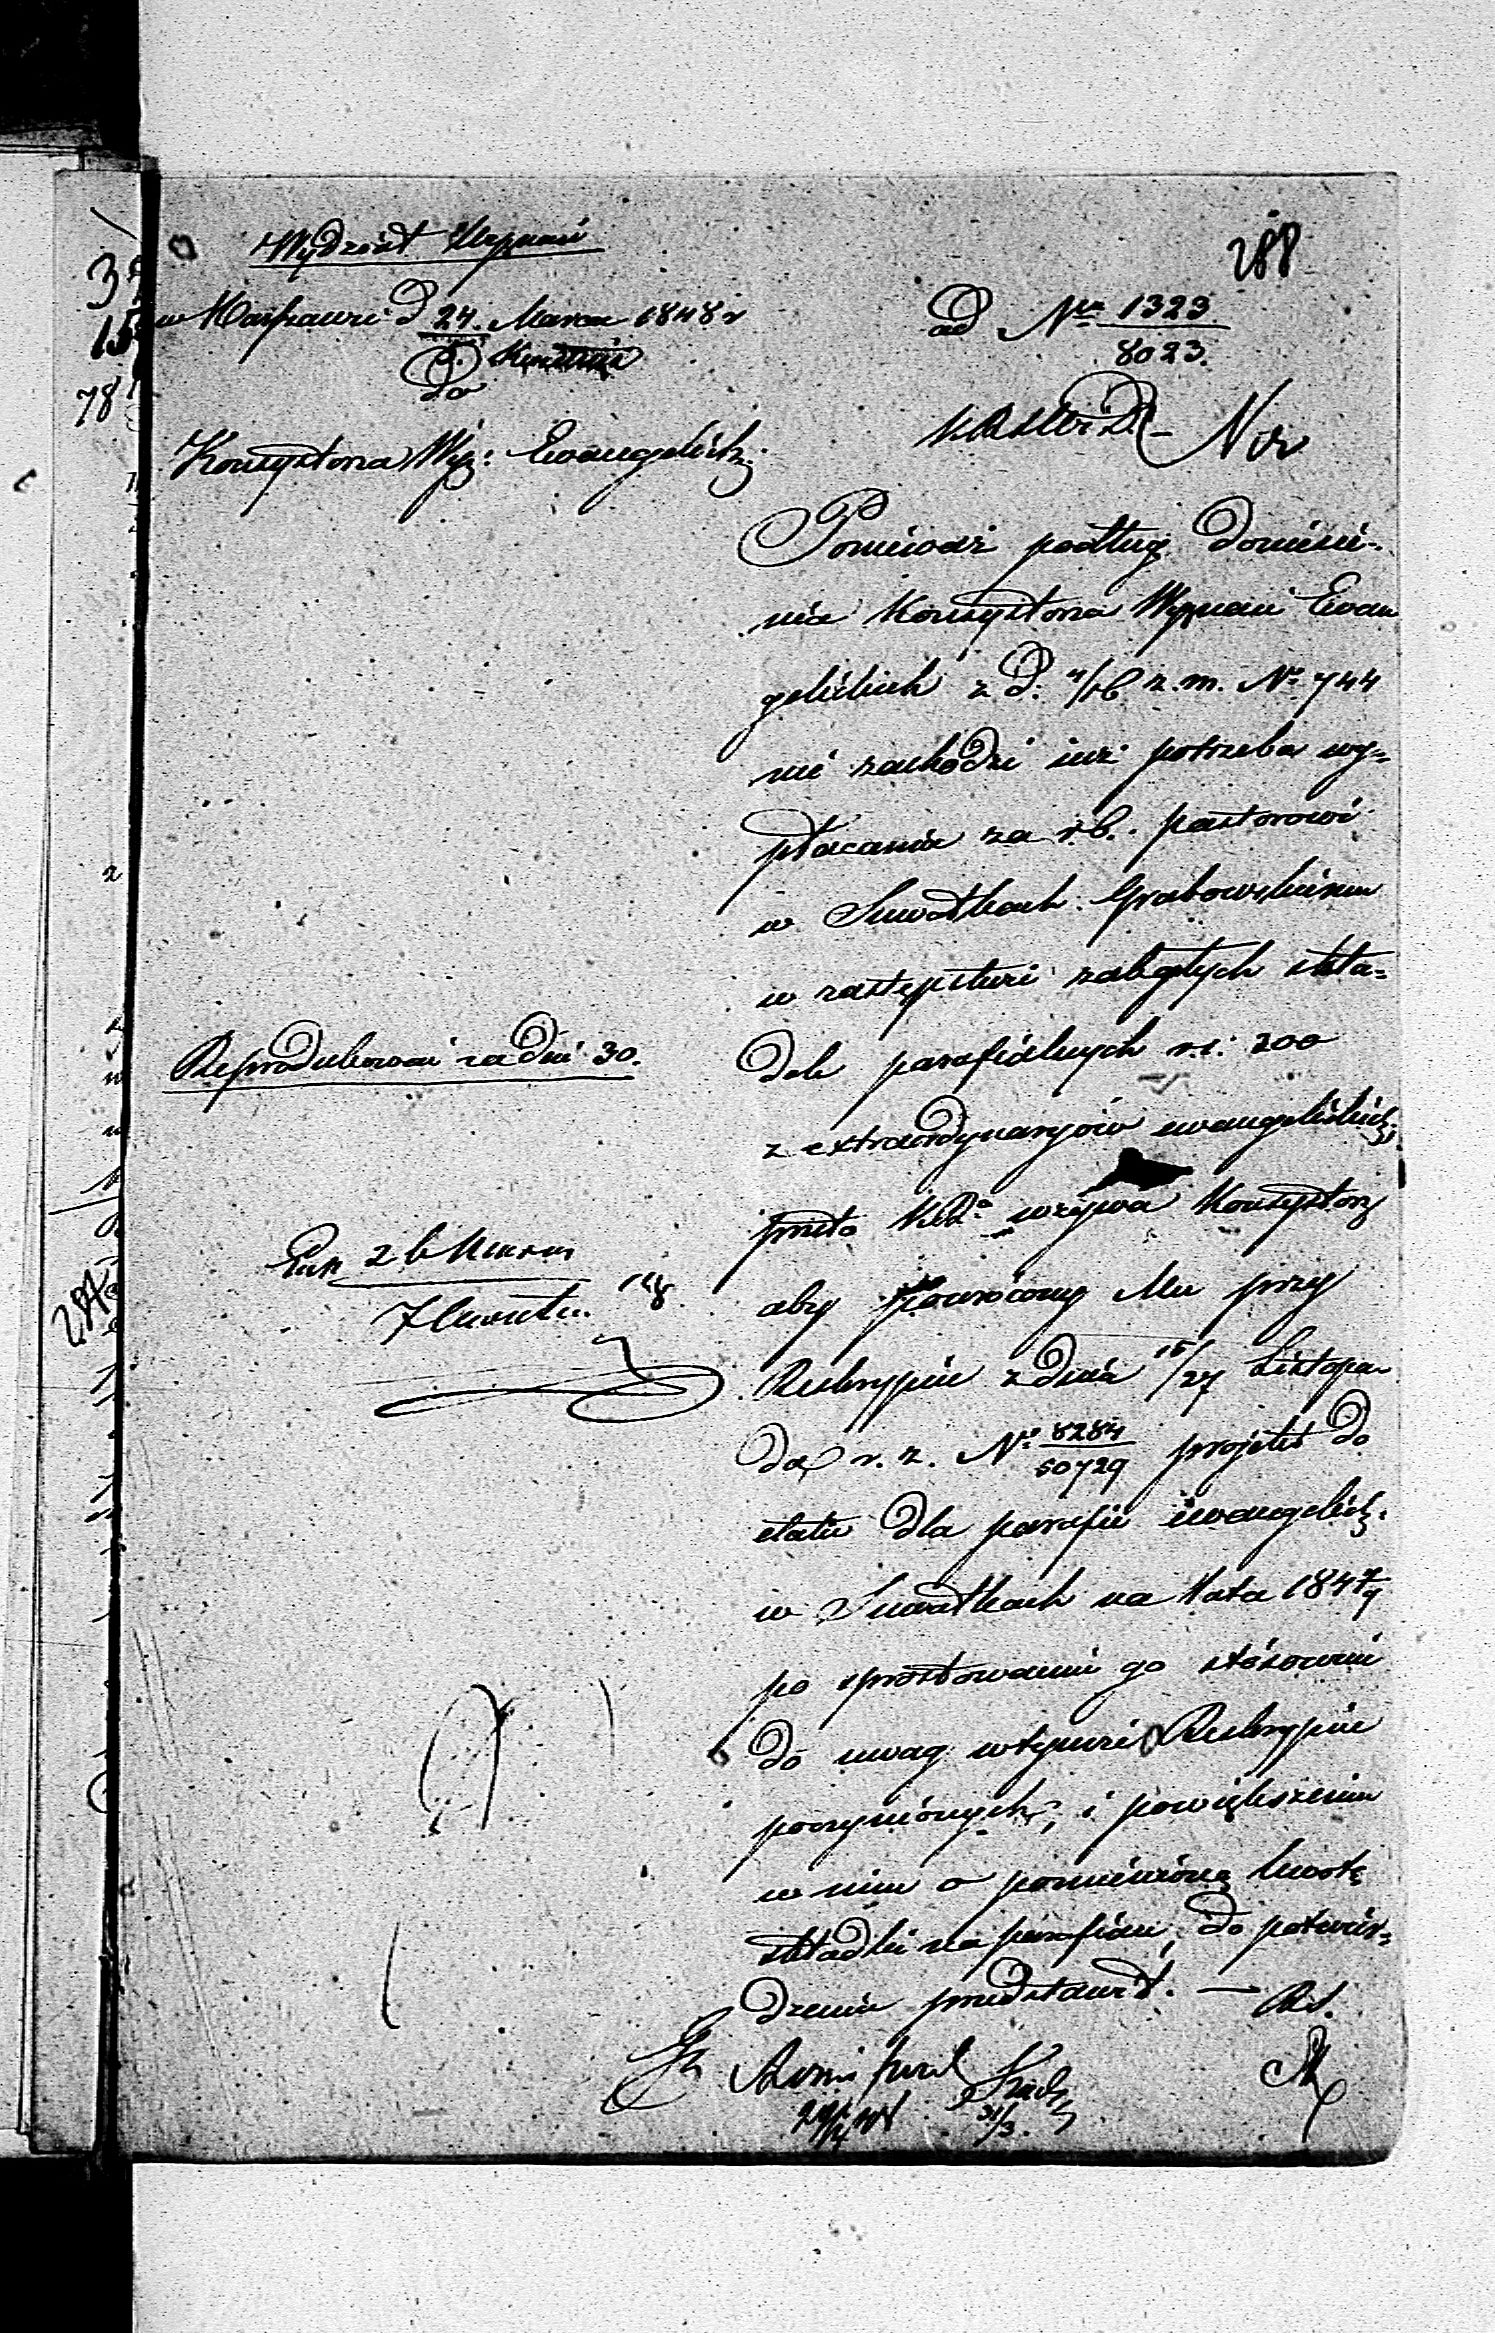 288
Wydział Wyznań
w Warszawie d 24. Marca 1848 r
ad Nr 1323
8023.
do
Konsystorza Wyz: Ewangelick:
Ponieważ podług doniesie-
nia Konsystorza Wyznań Ewan
gelickich z d. 4/16 z. m. No 744
nie zachodzi iuż potrzeba wy-
płacania za r. b. pastorowi
w Suwałkach Grabowskiemu
w zastępstwie zaległych skła-
dek parafialnych r.s. 200
z extraordynaryów ewangelickich;
przeto KR. wzywa Konsystorz
aby powrócony Mu przy
Reskrypcie z dnia 15/27 Listopa-
da r. z. No 8284
50729 projekt do
etatu dla parafii ewangelick:
w Suwałkach na lata 1847/9
po sprostowaniu go stósownie
do uwag w tymże Reskrypcie
poczynionych, i powiększeniu
w nim o pomienioną kwotę
składki na parafian, do potwier-
dzenia przedstawił. — RS.
Reprodukować za dni 30.
26 Marca
31/3.